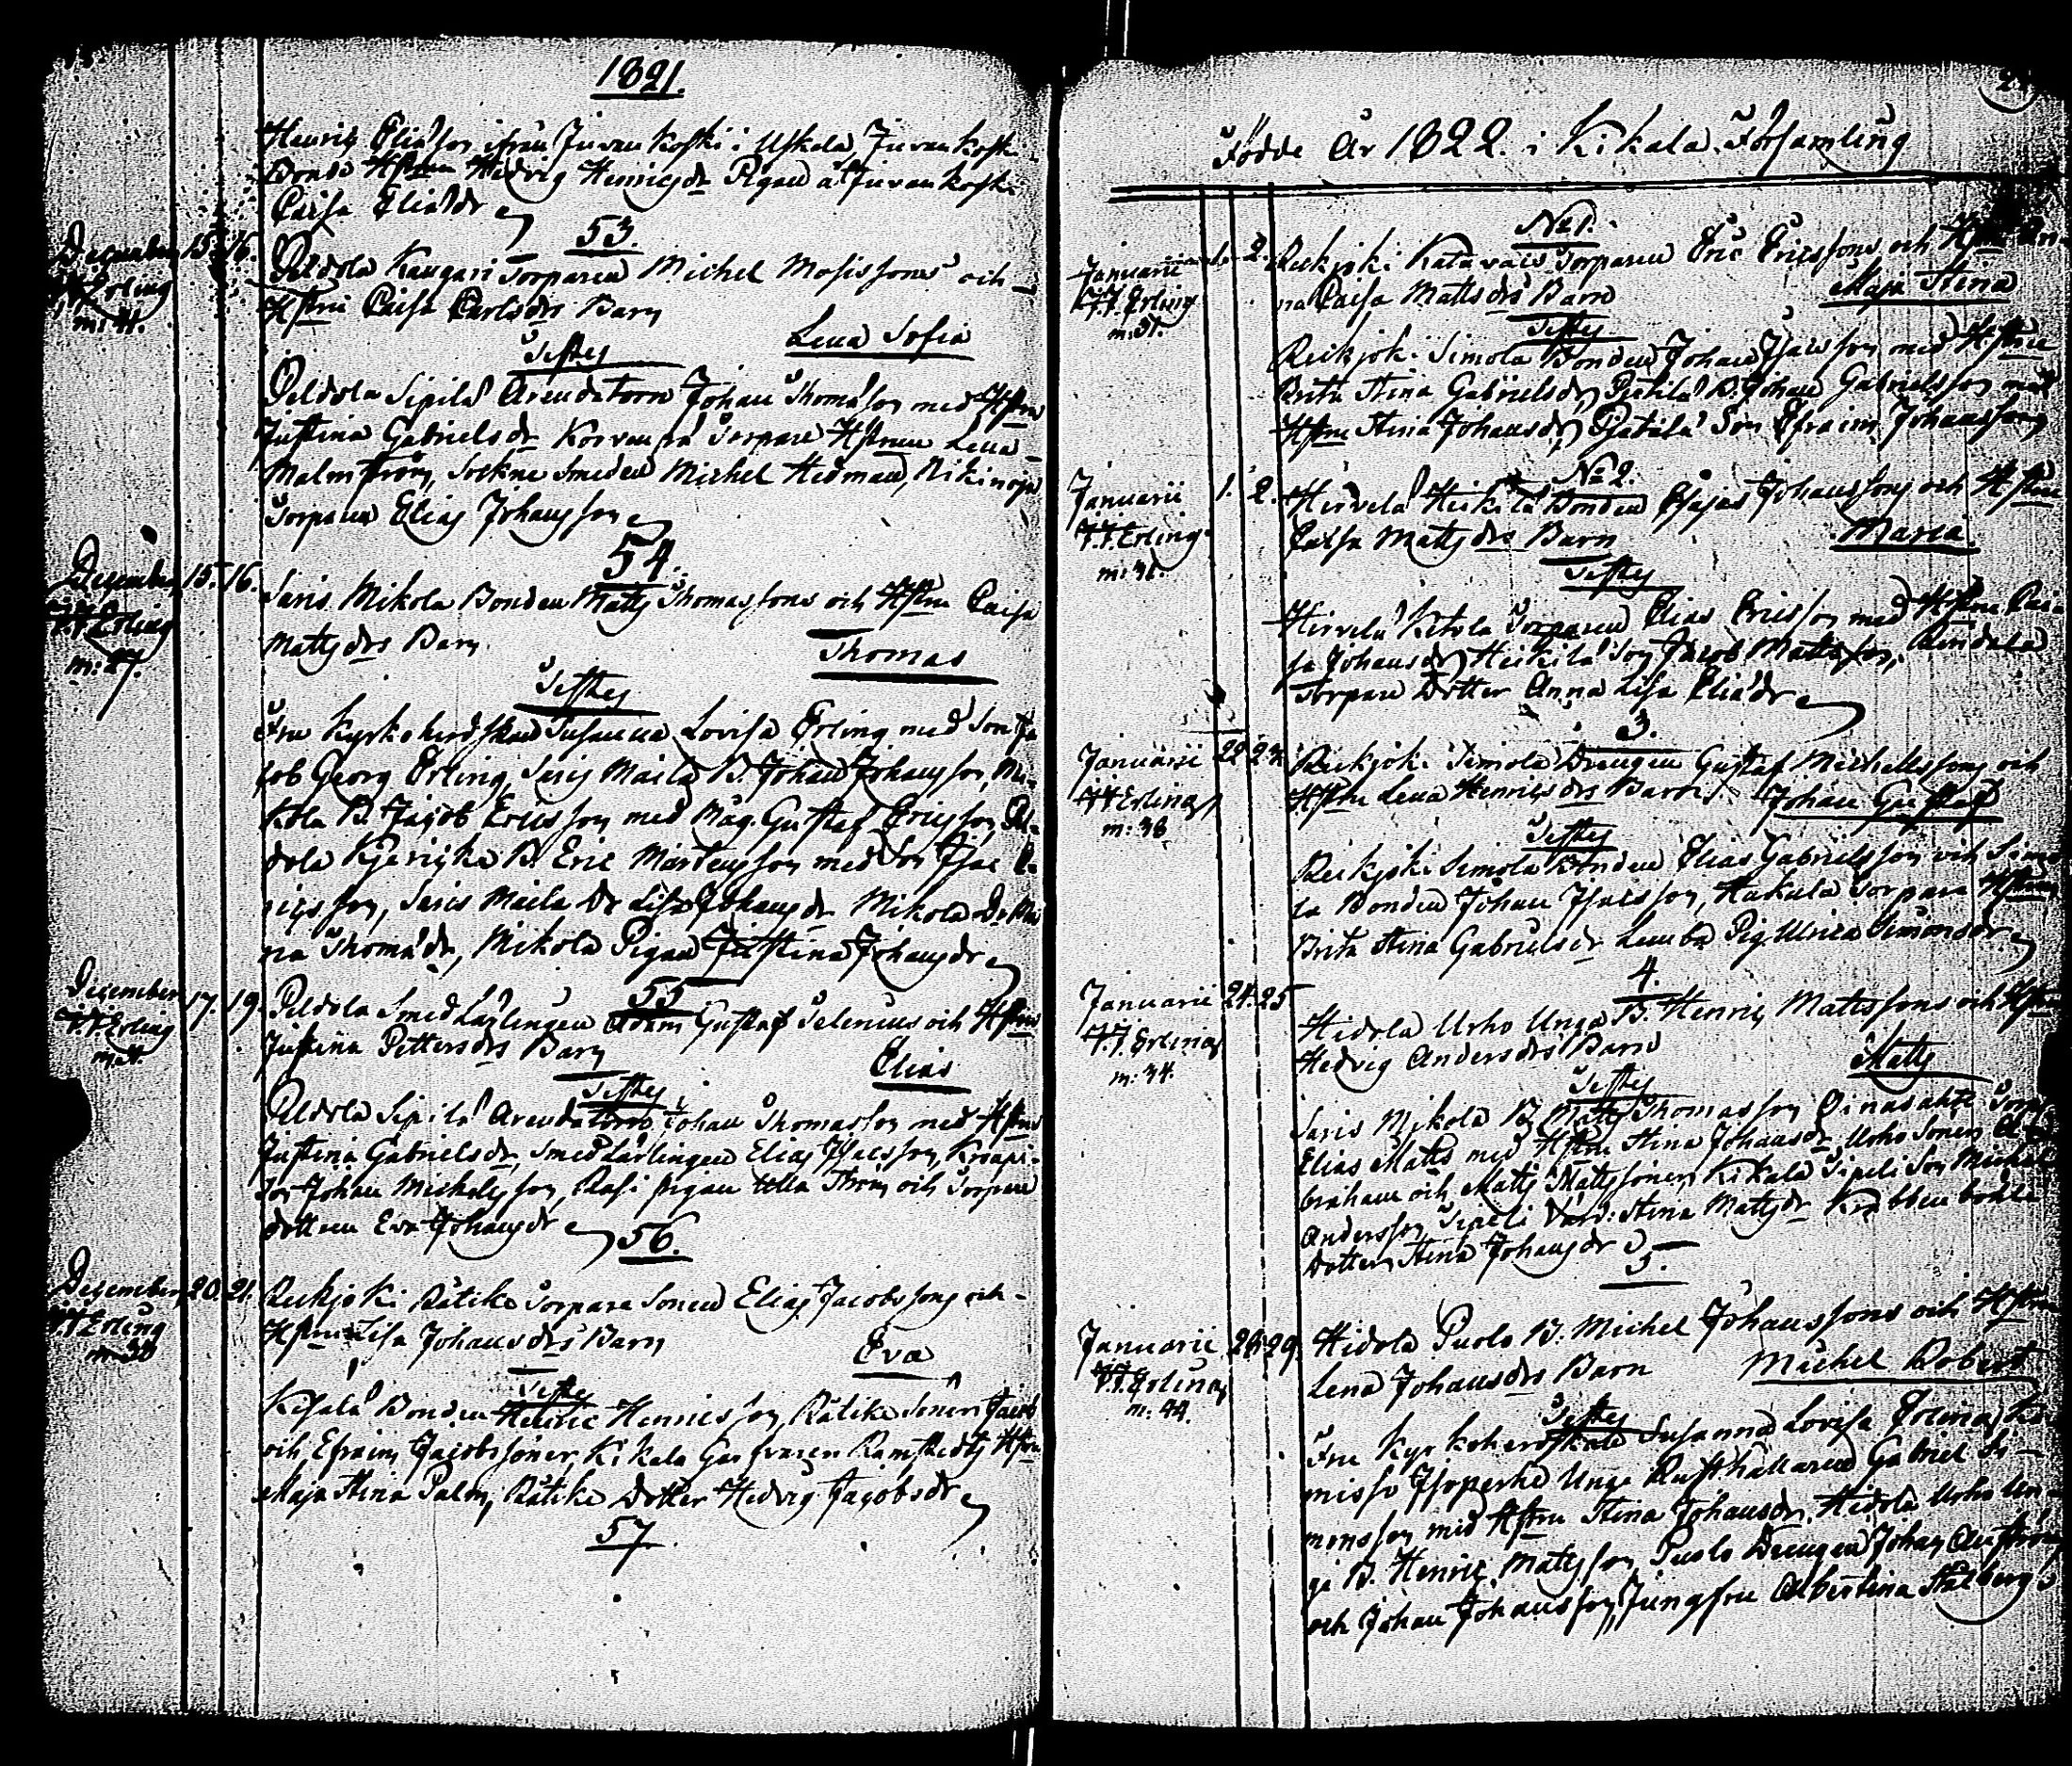 1821.
Henric Eliasson ifrån Juvankoski i Uskela, Juvankoski
Bonde Hstrun Hedvig Henricsdr Pigan ät Juvankoski
Caisa Eliadr
53.
December 15. 16. Peldola Kaugari Torparen Michel Mosissons och
J.J. Erling Hstru Caisa Carlsdrs Barn
m: 41. Lena Sofia
Testes
Peldola Sipilä Arendatorn Johan Thomasson med Hstru
Justina Gabrielsdr Korvenpä Torpare Hstrun Lena
Malmström, Sockne Smeden Michel Hedman, Rikinoja
Torparen Elias Johansson
54.
December 15. 16. Saris Mikola Bonden Matts Thomassons och Hstru Caisa
J.J. Erling Mattsdrs Barn
m: 27. Thomas
Testes
Fru Kyrkoherdskan Susanna Lovisa Erling med Son Ja-
cob Georg Erling, Saris Maila B. Johan Johansson, Mi-
kola B. Jacob Ericsson med Måg. Gustaf Ericsson, Pel-
dola B. Eric Mårtensson med Son Isac
Saris Maila Dr Lisa Johansdr Mikola Dr
na Thomadr, Mikola Pigan Justina Johansdr
55
December 17. 19. Peldola Smed Lärlingen Adam Gustaf Selenius och Hstrus
J.J. Erling Justina Pettersdrs Barn
Elias
Testes
Peldola Sipilä Arendatorn Johan Thomasson med Hstru
Justina Gabrielsdr, Smed Lärlingen Elias Isacsson,
Son Johan Michelsson, Rasi pigan Ulla Ström och Torpare
dottren Eva Johansdr
56.
December 20. 21. Rekjoki Rätike Torpare Sonen Elias Jacobssons och
J.J. Erling Hstrus Lisa Johansdrs Barn
m: 38 Eva
Testes
Kisala Bonden Henric Henricsson, Rätike Sönern Jacob
och Efraim Jacobssöner, Kikala Ramstedts Hstru
Maja Stina Palm, Rätike Dotter Hedvig Jacobsdr
57.
Födde År 1822. i Kikala Församling
No 1.
Januarii 1. 2. Rekjoki Katavais Torparen Eric Ericssons och Hstru An-
J.J. Erling na Caisa Mattsdrs Barn Maja Stina
m: 37.
Testes
Rekjoki Simola Bonden Johan Isacsson med Hstru
Brita Stina Gabrielsdr, Pietilä B. Johan Gabrielsson med
Hstru Stina Johansdr, Pietilä Son Efraim Johansson
No 2.
Januarii 1. 2. Hirvelä Heikilä Bonden Esajas Johanssons och Hstru
J.J. Erling Caisa Mattsdrs Barn Maria
m: 31.
Testes
Hirvelä Ketola Torparen Elias Ericsson med Hstru Cai-
sa Johansdr, Heikilä Son Jacob Mattsson,
Torpare Dotter Anna Lisa Eliadr
3.
Januarii 22 24 Rekjoki Simola Drengen Gustaf Michelssons och
J.J. Erling Hstru Lena Henricsdrs Barn Johan Gustaf
m: 38
Testes
Rekjoki Simola Bonden Elias Gabrielsson och Simo-
la Bonden Johan Isacsson, Hakala Torpare Hstrun
Brita Stina Gabrielsdr Pig. Ulrica Simonsdr
4.
Januarii 24. 25 Hidola Urho Unga B. Henric Mattssons och Hstru
J.J. Erling Hedvig Andersdrs Barn Matts
m: 34.
Testes
Saris Mikola B. Matts Thomasson
Elias Matts med Hstru Stina Johansdr, Urho Sönern A-
braham och Matts Mattssöner, Kikala Sipeli Son Michel
Andersson, Sipeli Värd: Stina Mattsdr
Dottern Stina Johansdr
5.
Januarii 28. 29. Hidola Puolo B. Michel Johanssons och Hstru
J.J. Erling Lena Johansdrs Barn Michel Robert
m: 44.
Testes
Fru Kyrkoherdskan Susanna Lovisa Erling,
Isoperhe Unge Rusthållaren Gabriel Si-
monsson med Hstru Stina Johansdr, Hidola Urho Un-
ge B. Henric Mattsson, Puolo Drengen Johan
och Johan Johansson, Jungfru Albertina Stålberg